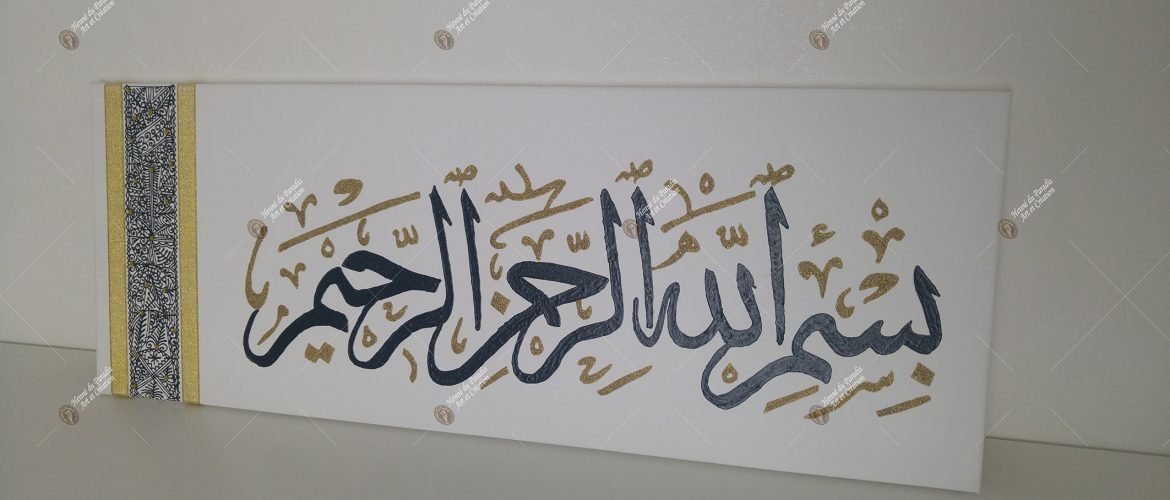 بسم الله الرحمن الرحيم
Henné du Paradis
Art et Création